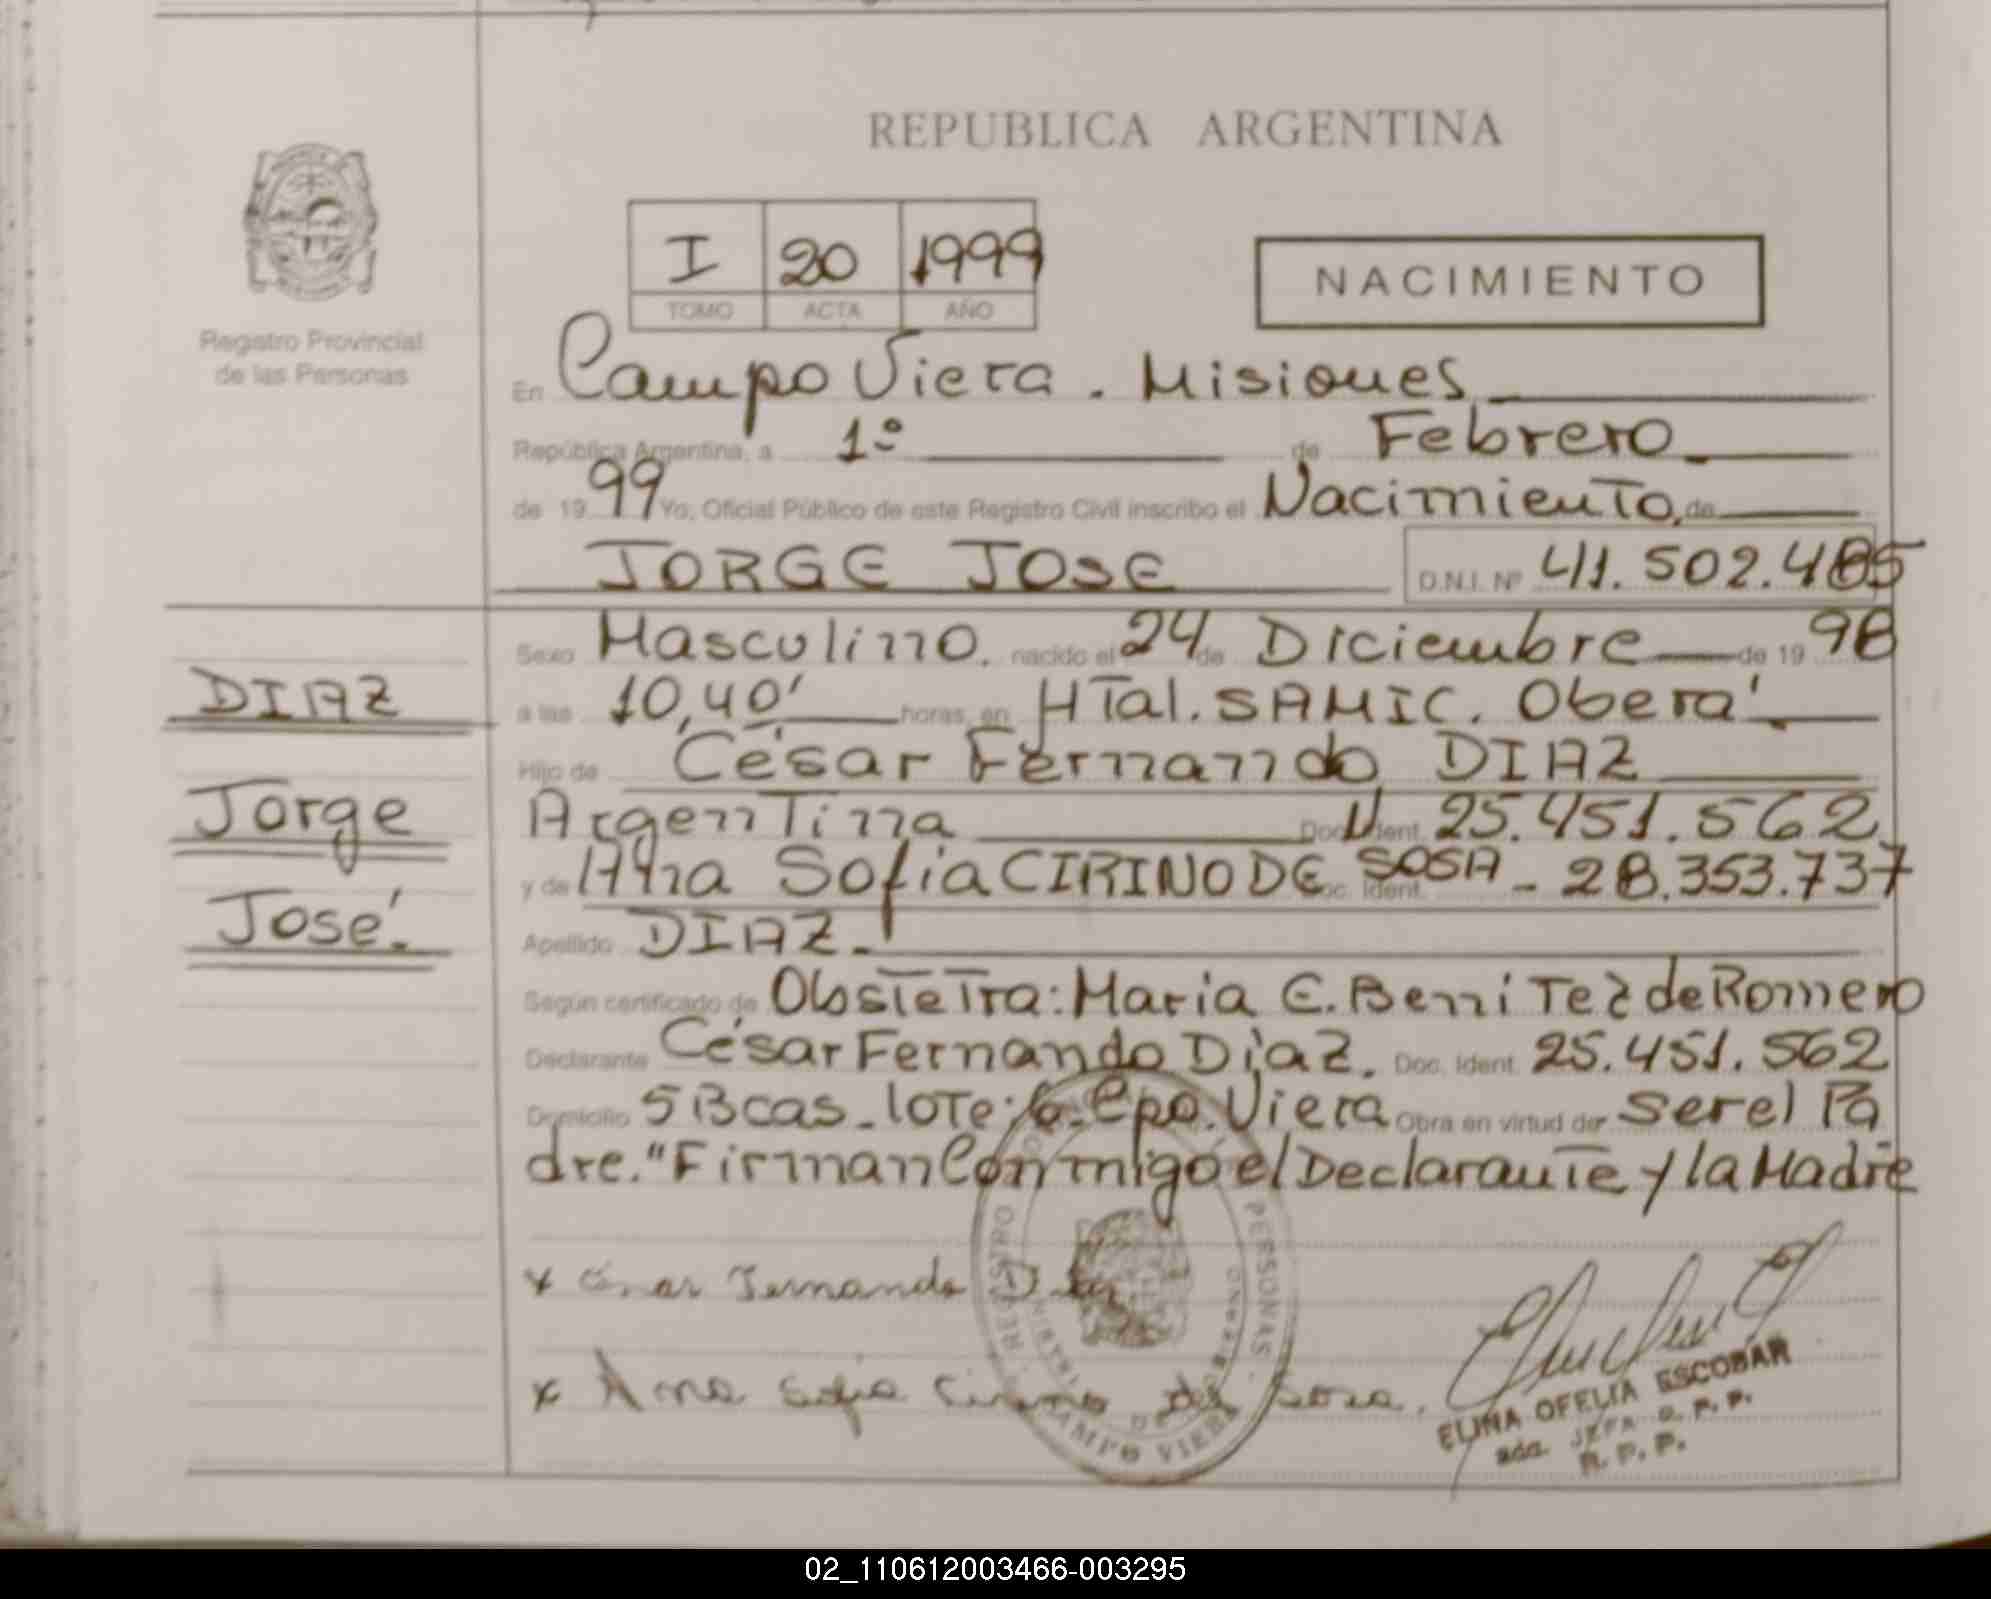 REPUBLICA ARGENTINA
I 20 1999
TOMO ACTA AÑO
NACIMIENTO
Registro Provincial
de las Personas
En Campo Viera. Misiones
República Argentina, a 1º de Febrero
de 1999 Yo, Oficial Público de este Registro Civil inscribo el Nacimiento, de
JORGE JOSE D.N.I. Nº 41.502.485
Sexo Masculino. nacido el 24 de Diciembre de 1998
DIAZ
a las 10,40' horas, en HTal. SAMIC. Oberá
Hijo de César Fernando DIAZ
Jorge
Argentina Doc. Ident. 25.451.562
y de Ana Sofia CIRINO DE SOSA - Doc. Ident. 28.353.737
José.
Apellido DIAZ.
Según certificado de Obstetra: Maria E. Benitez de Romero
Declarante César Fernando Diaz. Doc. Ident. 25.451.562
Domicilio Picas. lote: 6. Cpo. Viera Obra en virtud de ser el Pa
dre. "Firman Conmigo el Declarante y la Madre
x César Fernando Diaz
x Ana Sofia Cirino de Sosa.
REGISTRO PERSONAS
CAMPO VIERA
ELINA OFELIA ESCOBAR
JEFA
R. P. P.
02_110612003466-003295